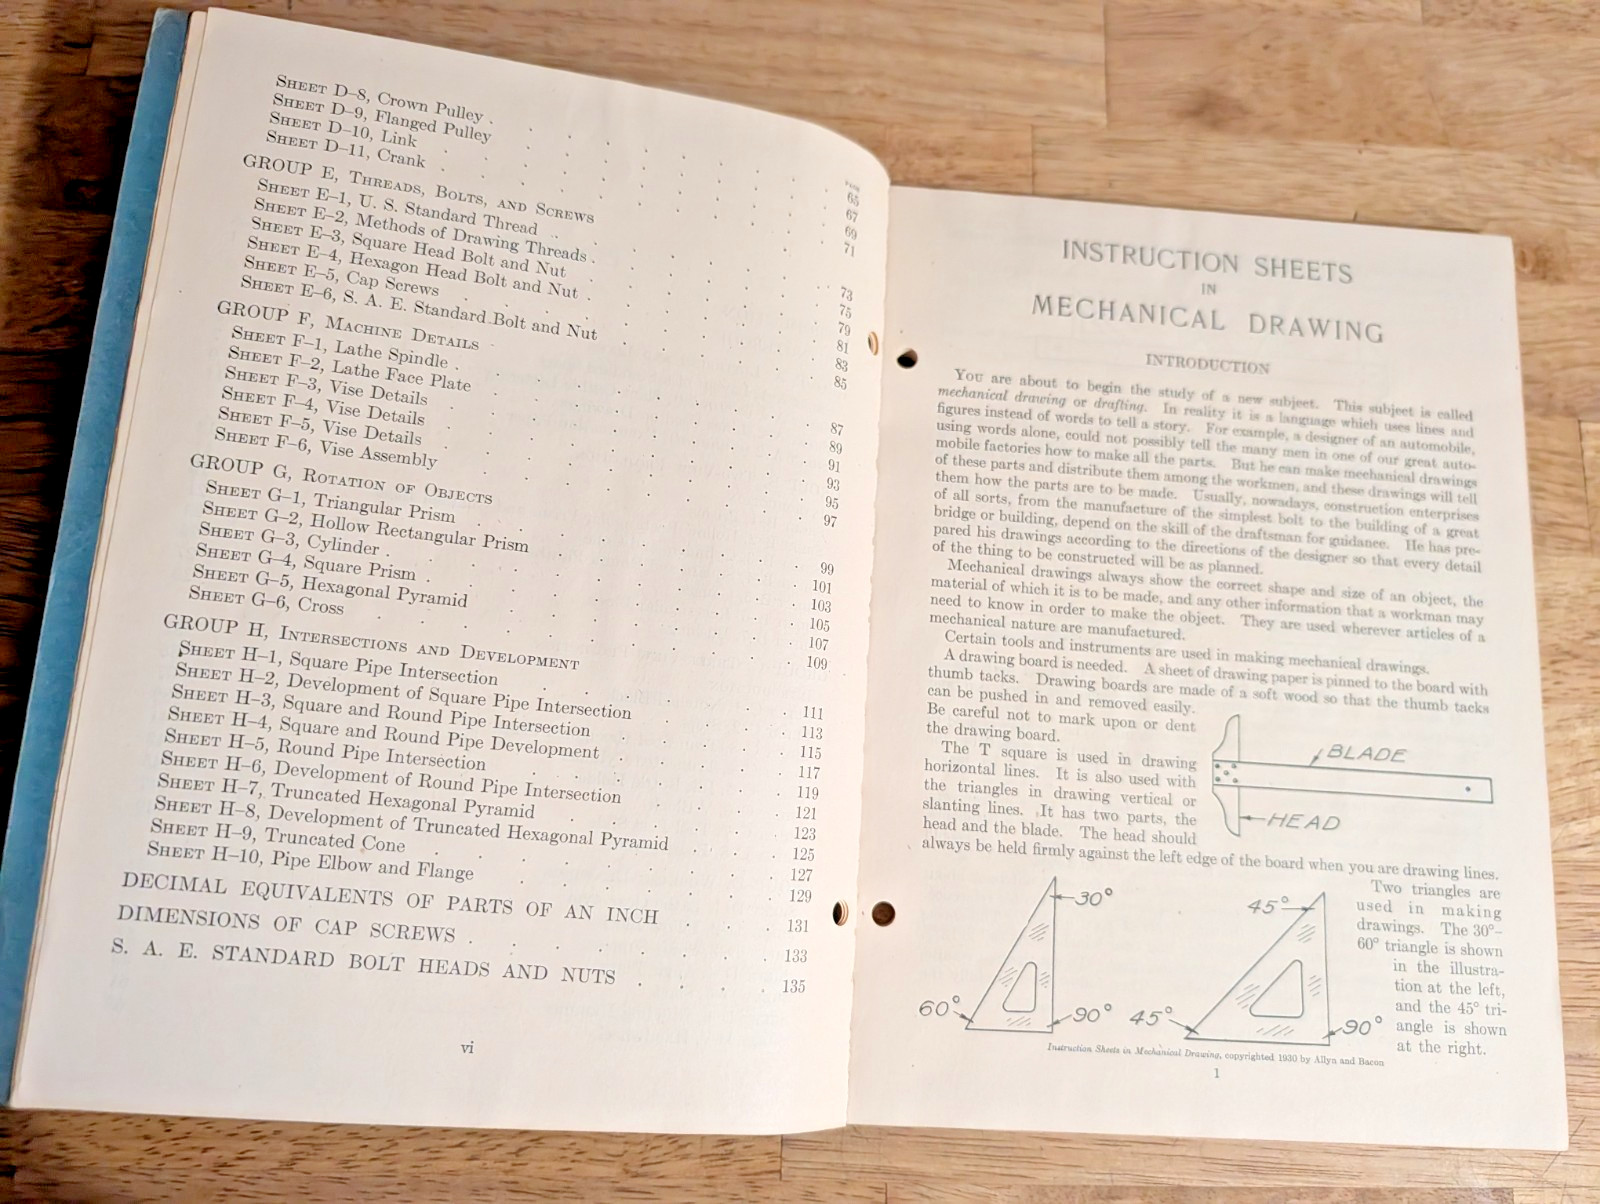 PAGE
SHEET D–8, Crown Pulley . . . . . . . . 65
SHEET D–9, Flanged Pulley . . . . . . . . 67
SHEET D–10, Link . . . . . . . . 69
SHEET D–11, Crank . . . . . . . . 71
GROUP E, THREADS, BOLTS, AND SCREWS
SHEET E–1, U. S. Standard Thread . . . . . . 73
SHEET E–2, Methods of Drawing Threads . . . . . . 75
SHEET E–3, Square Head Bolt and Nut . . . . . . 79
SHEET E–4, Hexagon Head Bolt and Nut . . . . . . 81
SHEET E–5, Cap Screws . . . . . . . . 83
SHEET E–6, S. A. E. Standard Bolt and Nut . . . . . 85
GROUP F, MACHINE DETAILS
SHEET F–1, Lathe Spindle . . . . . . . . 87
SHEET F–2, Lathe Face Plate . . . . . . . . 89
SHEET F–3, Vise Details . . . . . . . . 91
SHEET F–4, Vise Details . . . . . . . . 93
SHEET F–5, Vise Details . . . . . . . . 95
SHEET F–6, Vise Assembly . . . . . . . . 97
GROUP G, ROTATION OF OBJECTS
SHEET G–1, Triangular Prism . . . . . . . 99
SHEET G–2, Hollow Rectangular Prism . . . . . . 101
SHEET G–3, Cylinder . . . . . . . . 103
SHEET G–4, Square Prism . . . . . . . . 105
SHEET G–5, Hexagonal Pyramid . . . . . . . 107
SHEET G–6, Cross . . . . . . . . 109
GROUP H, INTERSECTIONS AND DEVELOPMENT
SHEET H–1, Square Pipe Intersection . . . . . . 111
SHEET H–2, Development of Square Pipe Intersection . . . . 113
SHEET H–3, Square and Round Pipe Intersection . . . . 115
SHEET H–4, Square and Round Pipe Development . . . . 117
SHEET H–5, Round Pipe Intersection . . . . . . 119
SHEET H–6, Development of Round Pipe Intersection . . . . 121
SHEET H–7, Truncated Hexagonal Pyramid . . . . . 123
SHEET H–8, Development of Truncated Hexagonal Pyramid . . . 125
SHEET H–9, Truncated Cone . . . . . . . 127
SHEET H–10, Pipe Elbow and Flange . . . . . . 129
DECIMAL EQUIVALENTS OF PARTS OF AN INCH . . . 131
DIMENSIONS OF CAP SCREWS . . . . . . 133
S. A. E. STANDARD BOLT HEADS AND NUTS . . . . 135
vi
INSTRUCTION SHEETS
IN
MECHANICAL DRAWING
INTRODUCTION
You are about to begin the study of a new subject. This subject is called
mechanical drawing or drafting. In reality it is a language which uses lines and
figures instead of words to tell a story. For example, a designer of an automobile,
using words alone, could not possibly tell the many men in one of our great auto-
mobile factories how to make all the parts. But he can make mechanical drawings
of these parts and distribute them among the workmen, and these drawings will tell
them how the parts are to be made. Usually, nowadays, construction enterprises
of all sorts, from the manufacture of the simplest bolt to the building of a great
bridge or building, depend on the skill of the draftsman for guidance. He has pre-
pared his drawings according to the directions of the designer so that every detail
of the thing to be constructed will be as planned.
Mechanical drawings always show the correct shape and size of an object, the
material of which it is to be made, and any other information that a workman may
need to know in order to make the object. They are used wherever articles of a
mechanical nature are manufactured.
Certain tools and instruments are used in making mechanical drawings.
A drawing board is needed. A sheet of drawing paper is pinned to the board with
thumb tacks. Drawing boards are made of a soft wood so that the thumb tacks
can be pushed in and removed easily.
Be careful not to mark upon or dent
the drawing board.
The T square is used in drawing
horizontal lines. It is also used with
the triangles in drawing vertical or
slanting lines. It has two parts, the
head and the blade. The head should
always be held firmly against the left edge of the board when you are drawing lines.
BLADE
HEAD
Two triangles are
used in making
drawings. The 30°–
60° triangle is shown
in the illustra-
tion at the left,
and the 45° tri-
angle is shown
at the right.
30°
60°
90°
45°
45°
90°
Instruction Sheets in Mechanical Drawing, copyrighted 1930 by Allyn and Bacon
1